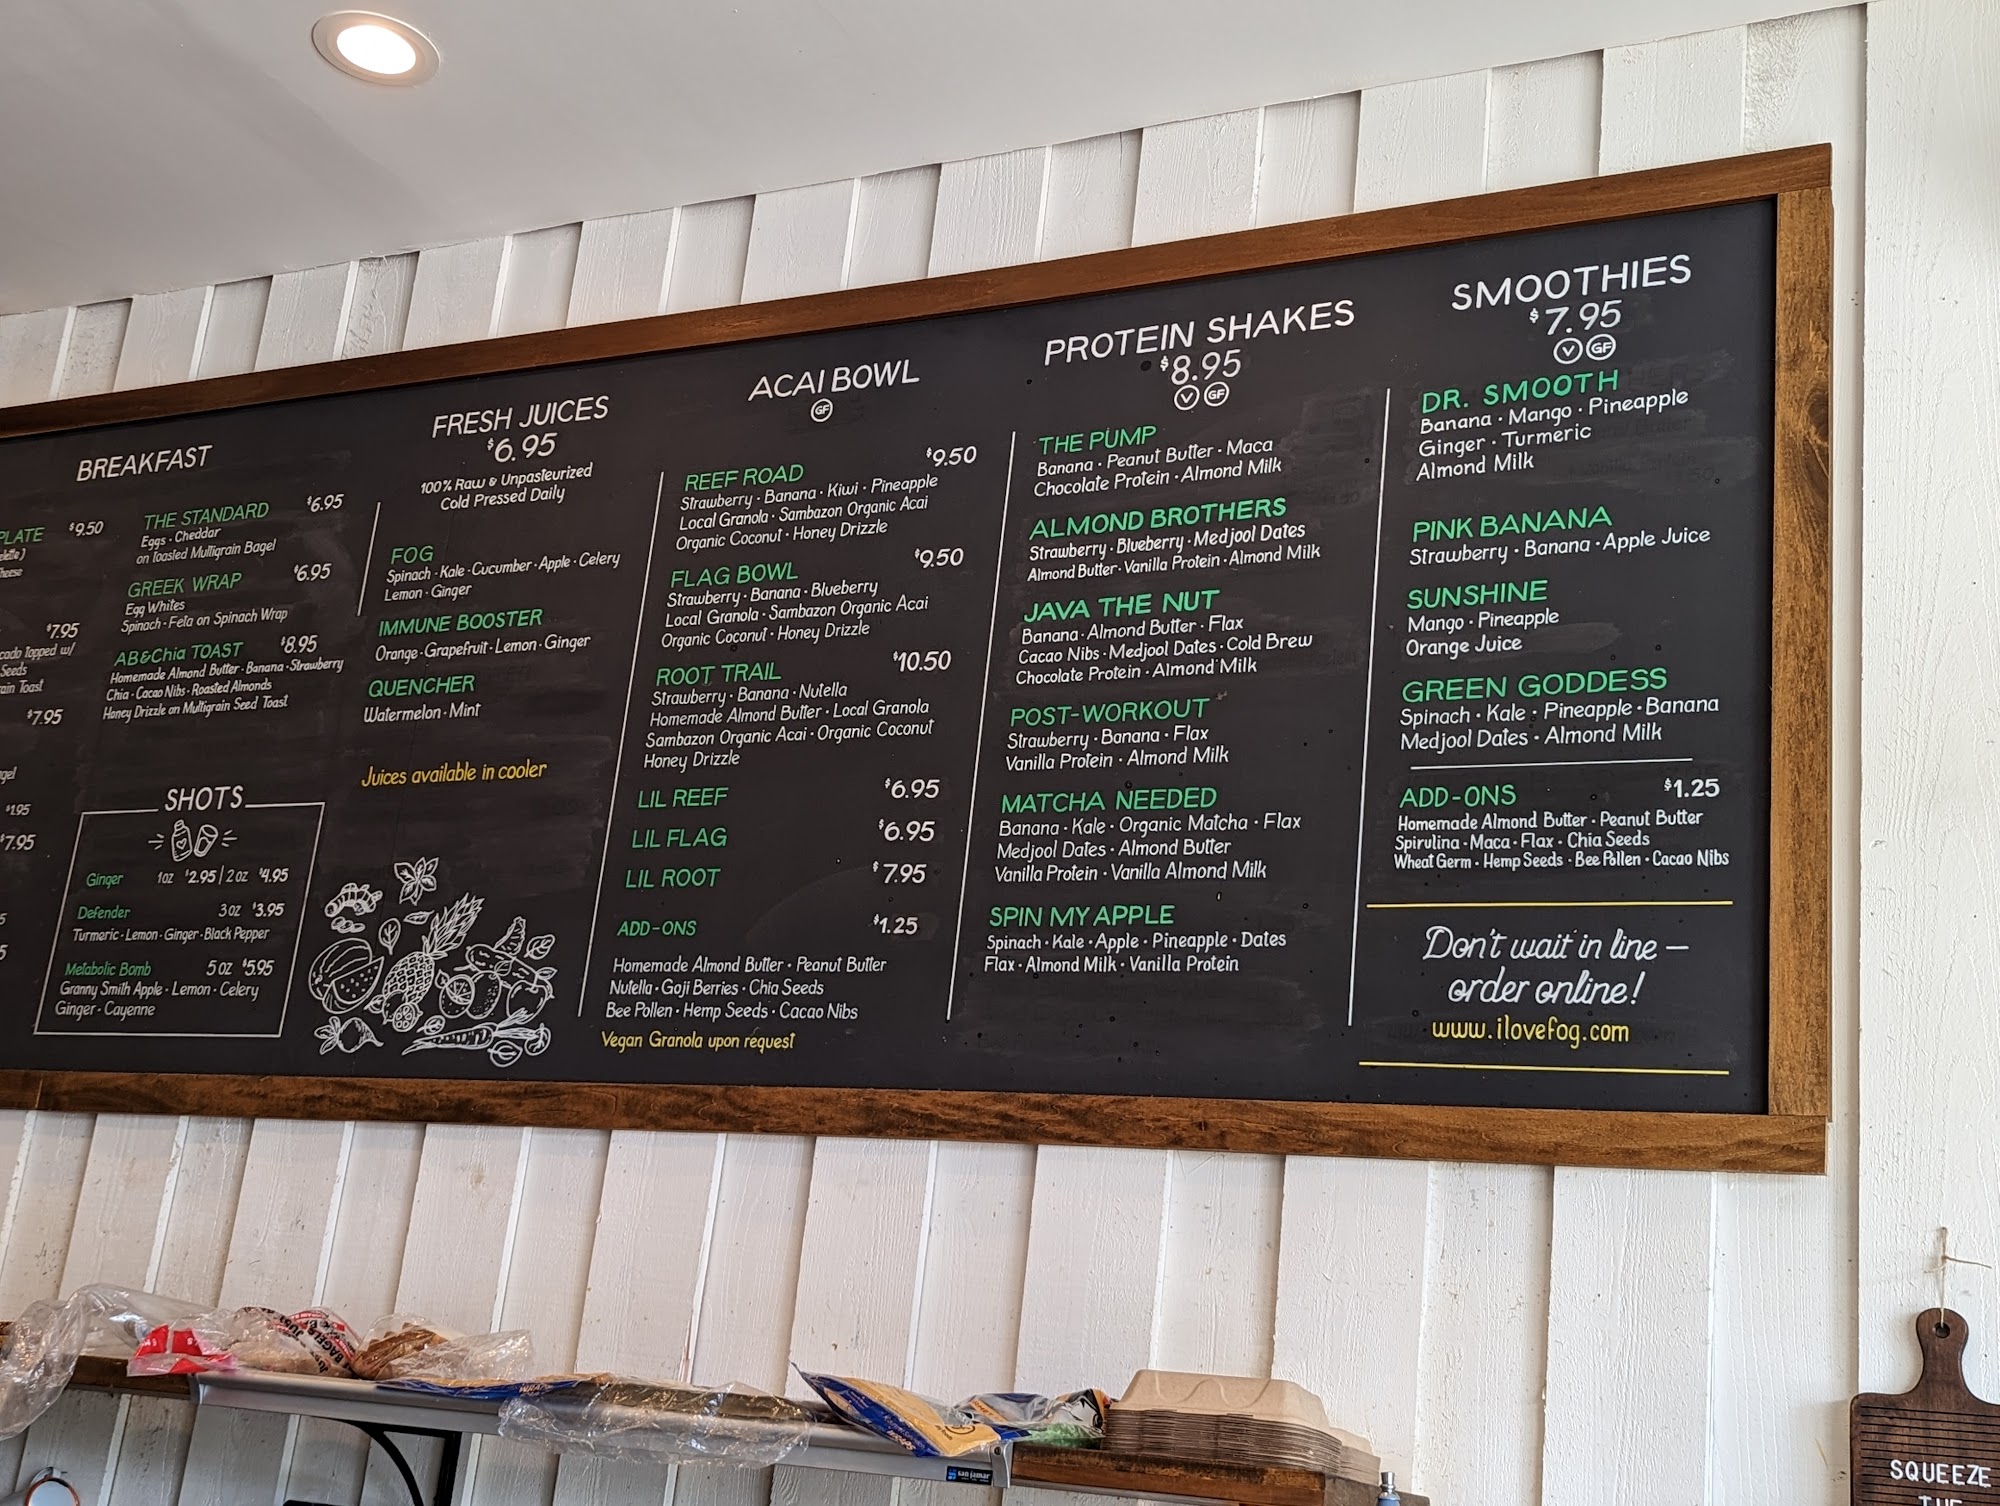 BREAKFAST
PLATE $9.50
$7.95
Seeds
Toast
$7.95
$1.95
$7.95
THE STANDARD $6.95
Eggs · Cheddar
on Toasted Multigrain Bagel
GREEK WRAP $6.95
Egg Whites
Spinach · Feta on Spinach Wrap
AB&Chia TOAST $8.95
Homemade Almond Butter · Banana · Strawberry
Chia · Cacao Nibs · Roasted Almonds
Honey Drizzle on Multigrain Seed Toast
SHOTS
Ginger 1oz $2.95 | 2oz $4.95
Defender 3oz $3.95
Turmeric · Lemon · Ginger · Black Pepper
Metabolic Bomb 5oz $5.95
Granny Smith Apple · Lemon · Celery
Ginger · Cayenne
FRESH JUICES
$6.95
100% Raw & Unpasteurized
Cold Pressed Daily
FOG
Spinach · Kale · Cucumber · Apple · Celery
Lemon · Ginger
IMMUNE BOOSTER
Orange · Grapefruit · Lemon · Ginger
QUENCHER
Watermelon · Mint
Juices available in cooler
ACAI BOWL
GF
REEF ROAD $9.50
Strawberry · Banana · Kiwi · Pineapple
Local Granola · Sambazon Organic Acai
Organic Coconut · Honey Drizzle
FLAG BOWL $9.50
Strawberry · Banana · Blueberry
Local Granola · Sambazon Organic Acai
Organic Coconut · Honey Drizzle
ROOT TRAIL $10.50
Strawberry · Banana · Nutella
Homemade Almond Butter · Local Granola
Sambazon Organic Acai · Organic Coconut
Honey Drizzle
LIL REEF $6.95
LIL FLAG $6.95
LIL ROOT $7.95
ADD-ONS $1.25
Homemade Almond Butter · Peanut Butter
Nutella · Goji Berries · Chia Seeds
Bee Pollen · Hemp Seeds · Cacao Nibs
Vegan Granola upon request
PROTEIN SHAKES
$8.95
V GF
THE PUMP
Banana · Peanut Butter · Maca
Chocolate Protein · Almond Milk
ALMOND BROTHERS
Strawberry · Blueberry · Medjool Dates
Almond Butter · Vanilla Protein · Almond Milk
JAVA THE NUT
Banana · Almond Butter · Flax
Cacao Nibs · Medjool Dates · Cold Brew
Chocolate Protein · Almond Milk
POST-WORKOUT
Strawberry · Banana · Flax
Vanilla Protein · Almond Milk
MATCHA NEEDED
Banana · Kale · Organic Matcha · Flax
Medjool Dates · Almond Butter
Vanilla Protein · Vanilla Almond Milk
SPIN MY APPLE
Spinach · Kale · Apple · Pineapple · Dates
Flax · Almond Milk · Vanilla Protein
SMOOTHIES
$7.95
V GF
DR. SMOOTH
Banana · Mango · Pineapple
Ginger · Turmeric
Almond Milk
PINK BANANA
Strawberry · Banana · Apple Juice
SUNSHINE
Mango · Pineapple
Orange Juice
GREEN GODDESS
Spinach · Kale · Pineapple · Banana
Medjool Dates · Almond Milk
ADD-ONS $1.25
Homemade Almond Butter · Peanut Butter
Spirulina · Maca · Flax · Chia Seeds
Wheat Germ · Hemp Seeds · Bee Pollen · Cacao Nibs
Don't wait in line –
order online!
www.ilovefog.com
BAGELS
WRAPS
san jamar
SQUEEZE